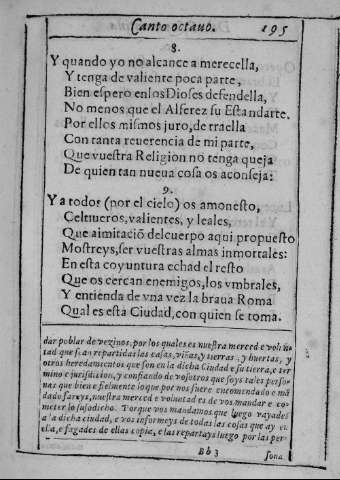 Canto octauo. 195
8.
Y quando yo no alcance a merecella,
Y tenga de valiente poca parte,
Bien espero en los Dioses defendella,
No menos que el Alferez su Estandarte.
Por ellos mismos juro, de traella
Con tanta reuerencia de mi parte,
Que vuestra Religion no tenga queja
De quien tan nueua cosa os aconseja:
9.
Y a todos (por el cielo) os amonesto,
Celtiueros, valientes, y leales,
Que a imitaciõ del cuerpo aqui propuesto
Mostreys, ser vuestras almas inmortales:
En esta coyuntura echad el resto
Que os cercan enemigos, los vmbrales,
Y entienda de vna vez la braua Roma
Qual es esta Ciudad, con quien se toma.
dar poblar de vezinos. por los quales es nuestra merced e volũ
tad que sean repartidas las casas, viñas, y tierras, y huertas, y
otros heredamientos que son en la dicha Ciudad e su tierra, e ter
mino e jurisdicion, y confiando de vosotros que soys tales perso
nas que bien e fielmente lo que por nos fuere encomendado e mã
dado fareys, nuestra merced e voluntad es de vos mandar e co-
meter lo susodicho. Porque vos mandamos que luego vayades
a la dicha ciudad, e vos informeys de todas las cosas que ay en
ella, e fagades de ellas copia, e las repartays luego por las per-
Bb 3 sona